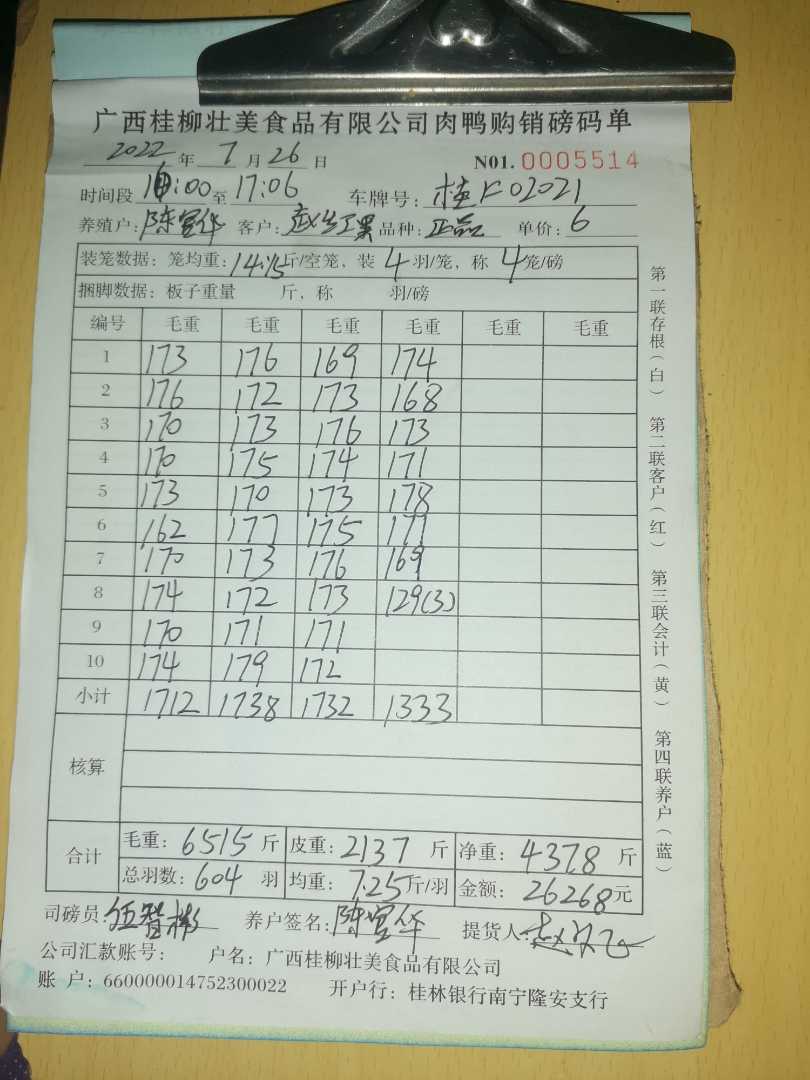 广西桂柳壮美食品有限公司肉鸭购销磅码单
2022 年 7 月 26 日 N01. 0005514
时间段 16:00 至 17:06 车牌号: 桂F02021
养殖户: 陈宣华 客户: 品种: 正品 单价: 6
装笼数据: 笼均重: 14.15 斤/空笼, 装 4 羽/笼, 称 4 笼/磅
捆脚数据: 板子重量 斤, 称 羽/磅
编号 毛重 毛重 毛重 毛重 毛重 毛重
1 173 176 169 174
2 176 172 173 168
3 170 173 176 173
4 170 175 174 171
5 173 170 173 178
6 162 177 175 171
7 170 173 176 169
8 174 172 173 129(3)
9 170 171 171
10 174 179 172
小计 1712 1738 1732 1333
核算
合计 毛重: 6515 斤 皮重: 2137 斤 净重: 4378 斤
总羽数: 604 羽 均重: 7.25 斤/羽 金额: 26268 元
司磅员: 养户签名: 陈宣华 提货人:
公司汇款账号: 户名: 广西桂柳壮美食品有限公司
账 户: 660000014752300022 开户行: 桂林银行南宁隆安支行
第一联存根(白) 第二联客户(红) 第三联会计(黄) 第四联养户(蓝)